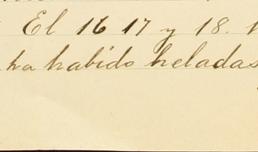 El 16 17 y 18.
ha habido heladas